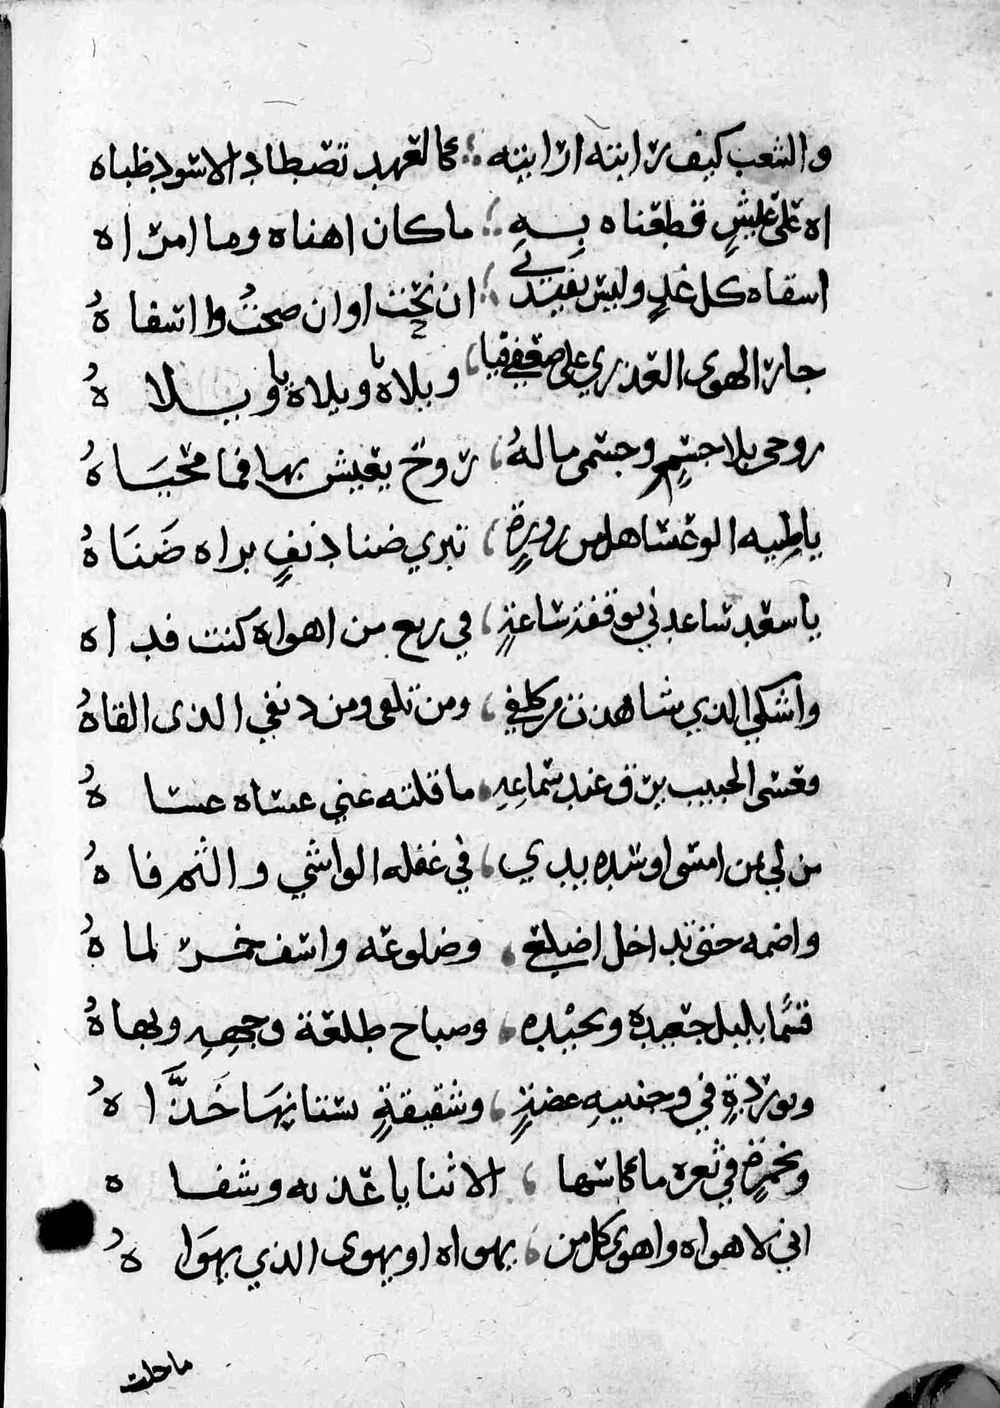 والشعب كيف رايته ارايته كالعهد تصطاد الاسود ظباه
اه على عيش قطعناه بـه ما كان اهناه وما امراه
اسفاه كل غدٍ وليس يفيدني ان نحت او ان صحت وا اسفاهُ
جار الهوى العذري على ضعفي فيا ويلاه يا ويلاة يا ويـلاهُ
روحي بلا جسمٍ وجسمي مالهُ روح يعيش بها فما محيَاهُ
يا ظبيه الوعسا هل من زورةٍ تبري ضنا دنفٍ براه ضَنَاهُ
يا سعد ساعدني بوقفة ساعةٍ في ربع من اهواه كنت فداه
واشكي الذي شاهدت من كلفي ومن تلفي ومن دنفي الذي القاهُ
فعسى الحبيب يرق عند سماعه ما قلته عني عساه عساهُ
من لي بمن امسى اوسده يدي في غفله الواشي والثم فاهُ
واضمه حتى تداخل اضلعي وضلوعه واشف خمر لماهُ
قسمًا بليل جعده وبجيده وصباح طلعة وجهه وبهاهُ
وبوردةٍ في وجنتيه غضةٍ وشقيقةٍ بستانها خَدَّاهُ
وبخمرةٍ في ثغره ما كاسها الا ثنايا عذبه وشفاه
اني لاهواه واهوى كل من يهواه او يهوى الذي يهوَاهُ
ما حلت